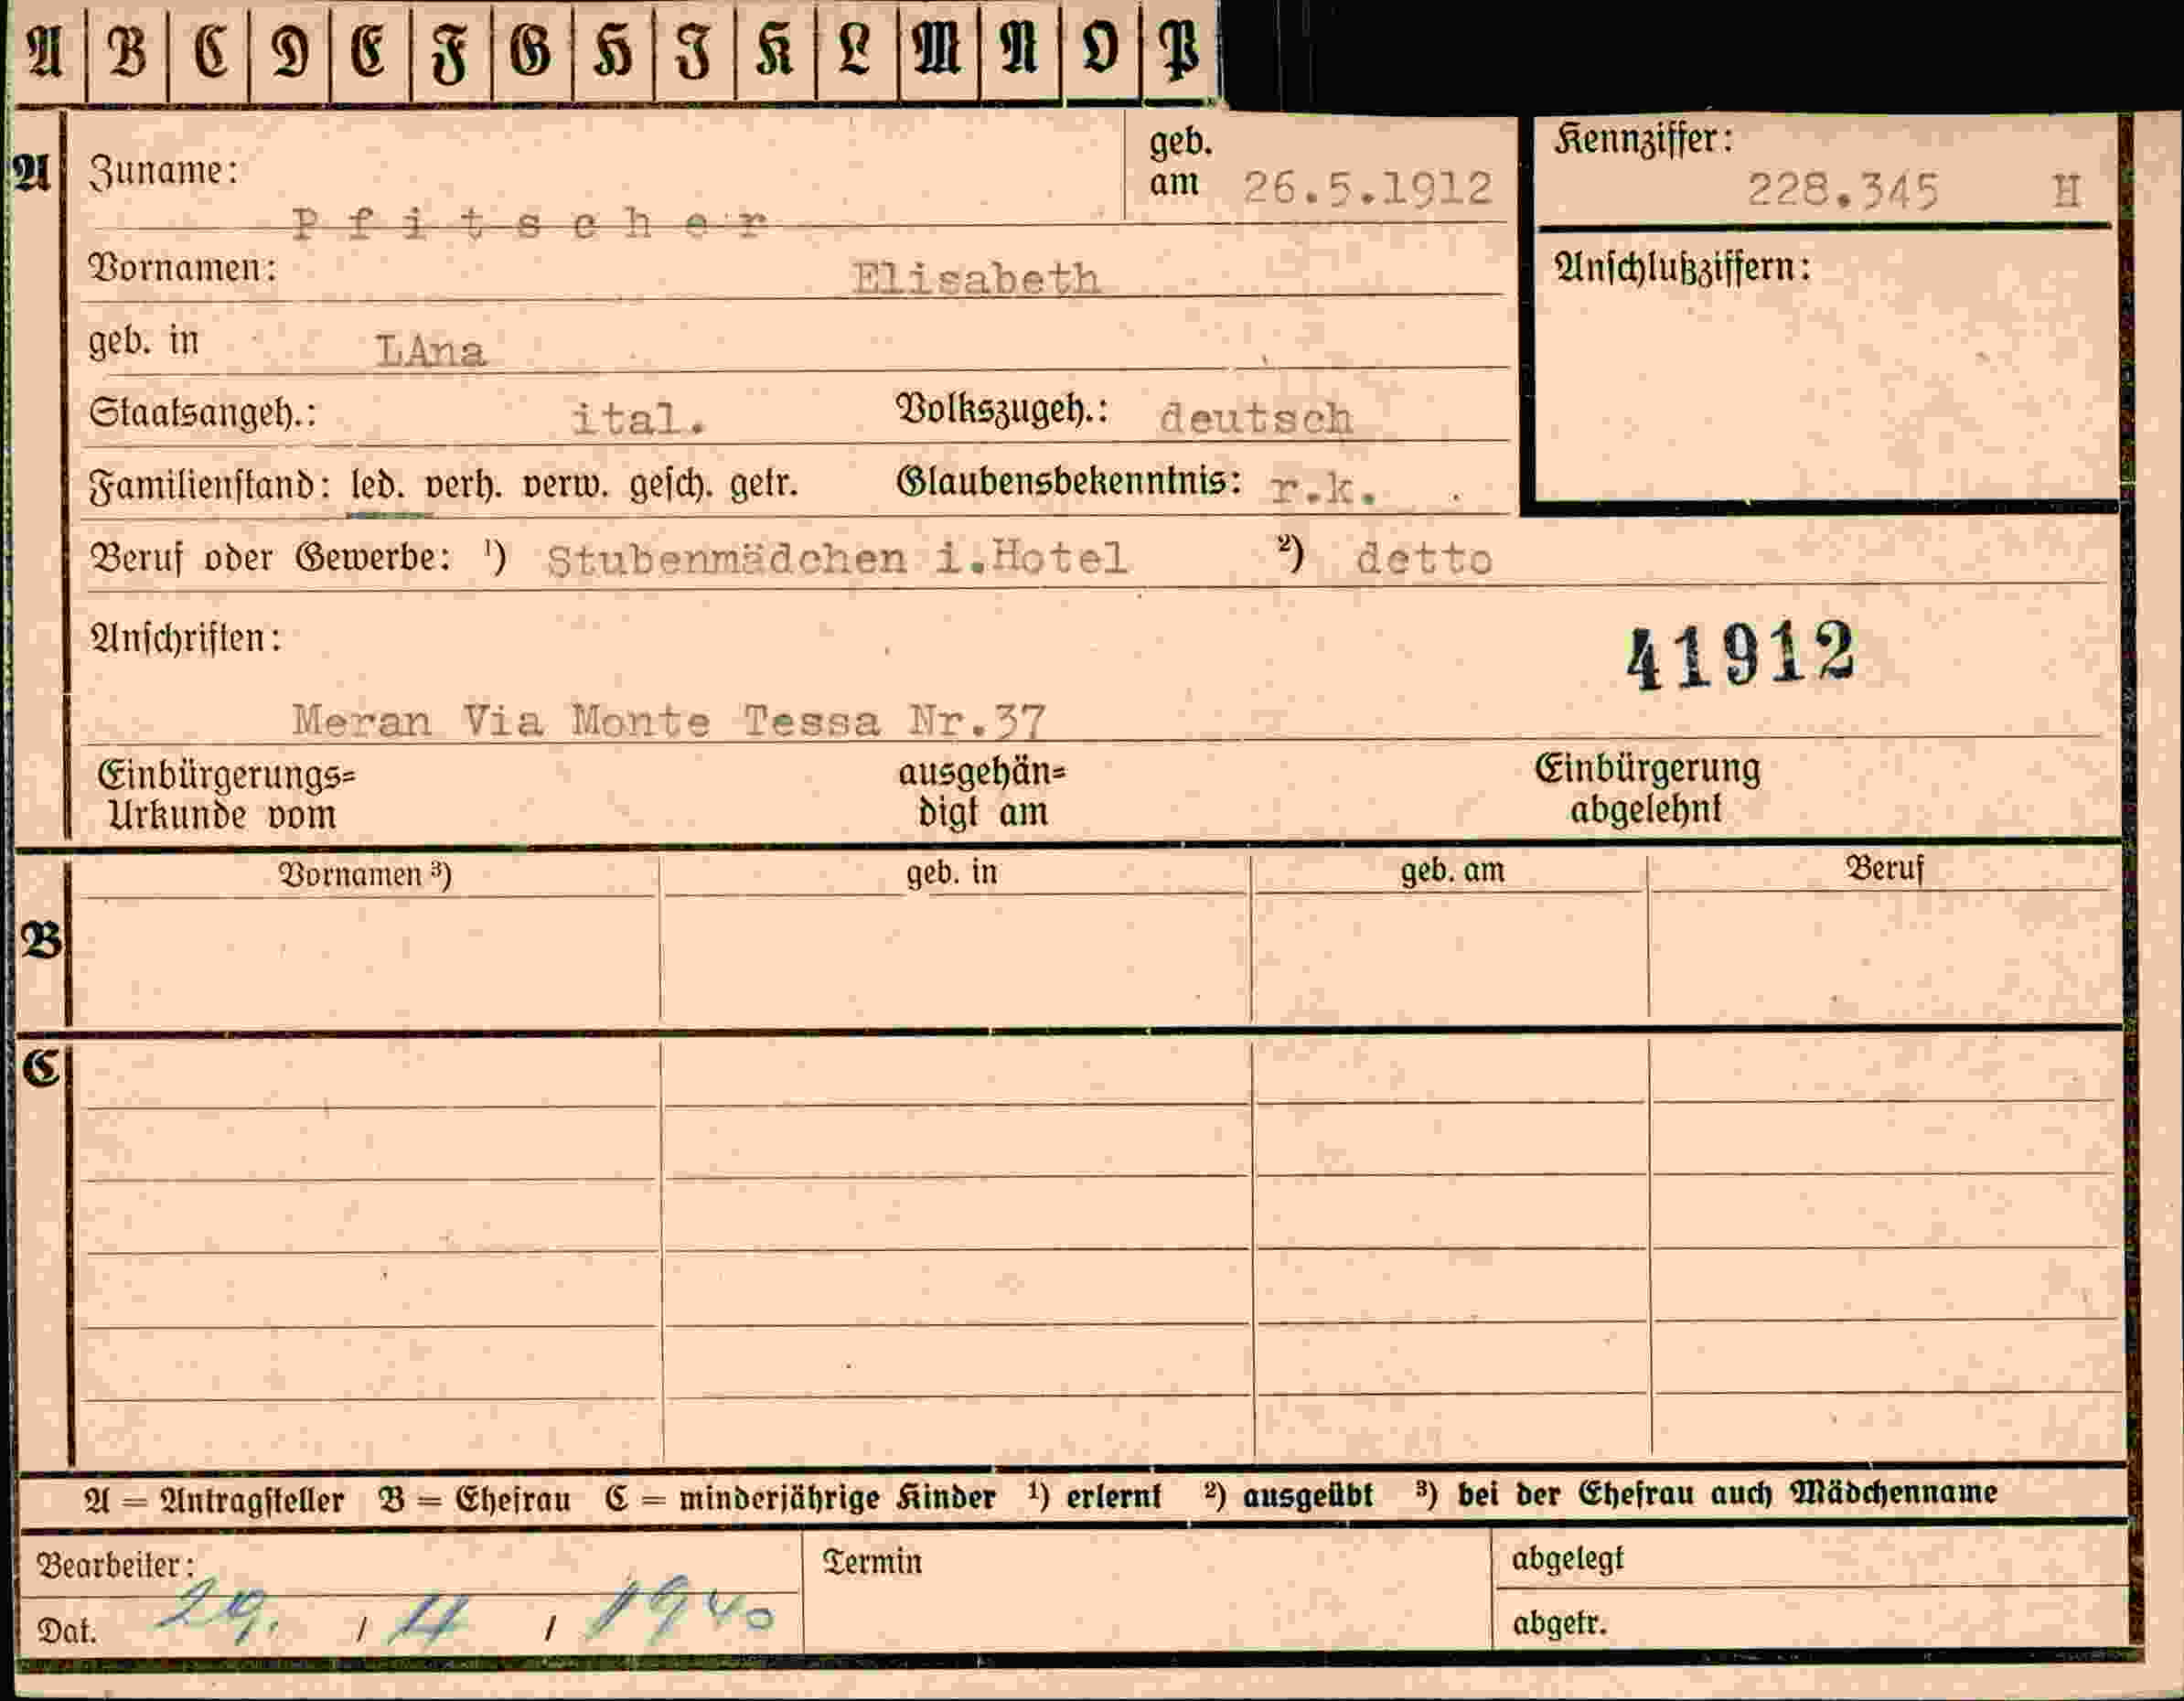 A B C D E F G H I K L M N O P
A
Zuname: Pfitscher
geb. am 26.5.1912
Kennziffer: 228.345 H
Vornamen: Elisabeth
Anschlußziffern:
geb. in LAna
Staatsangeh.: ital. Volkszugeh.: deutsch
Familienstand: led. verh. verw. gesch. getr. Glaubensbekenntnis: r.k.
Beruf oder Gewerbe: ¹) Stubenmädchen i.Hotel ²) detto
Anschriften:
41912
Meran Via Monte Tessa Nr.37
Einbürgerungs= ausgehän= Einbürgerung
Urkunde vom digt am abgelehnt
B
Vornamen ³) geb. in geb. am Beruf
C
A = Antragsteller B = Ehefrau C = minderjährige Kinder ¹) erlernt ²) ausgeübt ³) bei der Ehefrau auch Mädchenname
Bearbeiter: Termin abgelegt
Dat. 29. / 4 / 1940 abgetr.